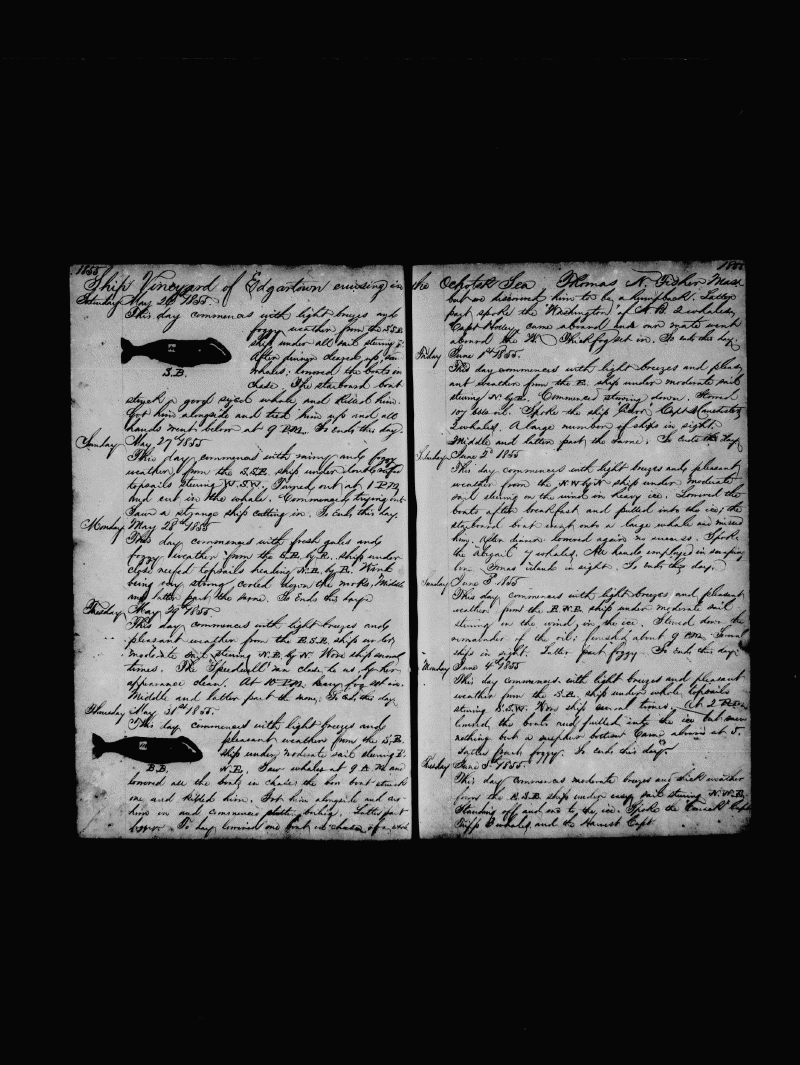 1855
Ship Vineyard of Edgartown cruising in
Saturday May 26th 1855.
This day commences with light breezes and
foggy weather from the S.S.E.
ship under all sail steering
After dinner cleared up, saw
whales; lowered the boats in
chase. The starboard boat
S.B.
struck a good sized whale and killed him.
Got him alongside and took him up and all
hands went below at 9 P.M. So Ends this day
Sunday May 27th 1855
This day commences with rainy and foggy
weather from the S.S.E. ship under double reefed
topsails steering W.S.W. Turned out at 1 P.M.
And cut in the whale. Commenced trying out
Saw a strange ship cutting in. So Ends this day.
Monday May 28th 1855
This day commences with fresh gales and
foggy weather from the S.E. by E. ship under
close reefed topsails heading N.E. by E. Wind
being very strong, cooled down the works, Middle
and latter part the same. So Ends this day
Tuesday May 29th 1855
This day commences with light breezes and
pleasant weather from the E.S.E. ship under
moderate sail steering N.E. by N. Wore ship several
times. The Speedwell ran close to us, by her
appearance clean. At 10 P.M. heavy fog set in.
Middle and latter part the same, So Ends this day
Thursday May 31st 1855
This day commences with light breezes and
pleasant weather from the S.E.
ship under moderate sail steering
N.E. Saw whales at 9 A.M. and
B.B.
lowered all the boats in chase: the bow boat struck
one and killed him. Got him alongside and cut
him in and commences boiling. Latter part
foggy. To day lowered one boat in chase of a
1855
the Ochotsk Sea Thomas N. Fisher
but we discovered him to be a humpback. Latter
part spoke the Washington of N.B. 2 whales,
Capt Holley, came aboard and our mate went
aboard the W. Thick fog set in. So ends this day
Friday June 1st 1855.
This day commences with light breezes and pleas
ant weather from the E. ship under moderate sail
steering N. by E. Commenced stowing down. Stowed
107 bbls oil. Spoke the ship Capt
2 whales. A large number of ships in sight.
Middle and latter part the same. So Ends this day
Saturday June 2d 1855
This day commences with light breezes and pleasant
weather from the N.N. by W. ship under moderate
sail steering on the wind in heavy ice. Lowered the
boats after breakfast and pulled into the ice; the
starboard boat went onto a large whale and missed
him. After dinner lowered again no success. Spoke
the Abigail 7 whales. All hands employed in scraping
bone. Jonas island in sight. So ends this day.
Sunday June 3d 1855
This day commences with light breezes and pleasant
weather from the E.N.E. ship under moderate sail
steering on the wind, in the ice. Stowed down the
remainder of the oil; finished about 9 P.M. Several
ships in sight. Latter part foggy. So Ends this day.
Monday June 4th 1855
This day commences with light breezes and pleasant
weather from the S.E. ship under whole topsails
steering S.S.W. Wore ship several times. At 2 P.M.
lowered the boats and pulled into the ice but saw
nothing but a sulphur bottom Came aboard at 5.
Latter part foggy. So ends this day
Tuesday June 5th 1855
This day commences moderate breezes and thick weather
from the E.S.E. ship under easy sail steering N.N.E.
Standing off and on to the ice. Spoke the Capt
3 whales, and the Harvest Capt